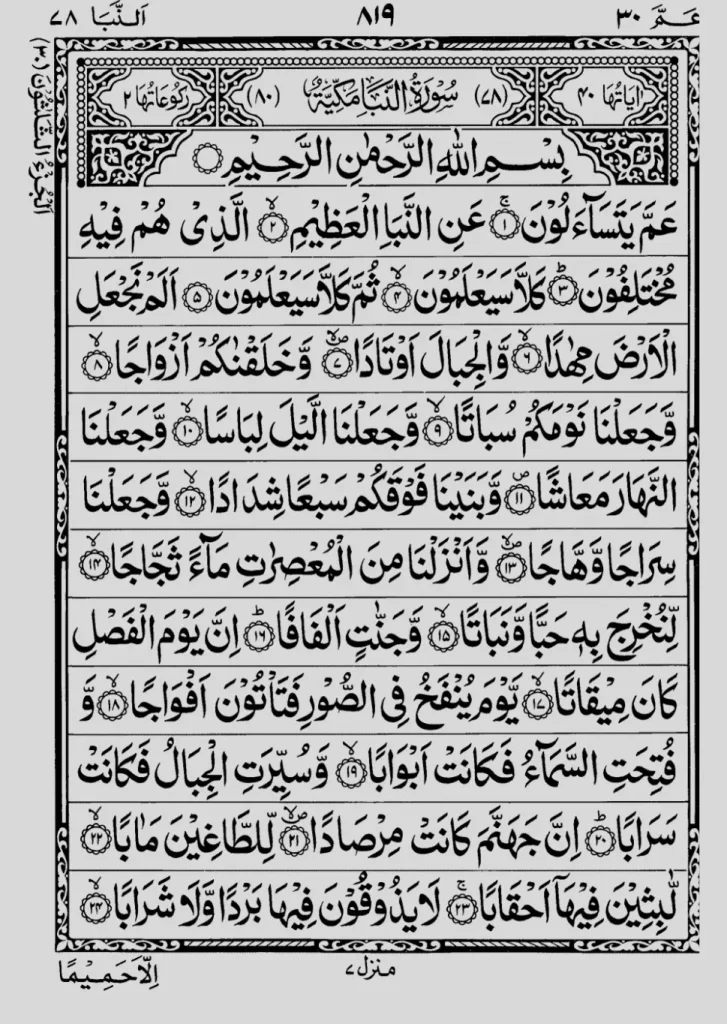 عَـمَّ ٣٠
٨١٩
اَلنَّبَا ٧٨
اَلْجُزْءُ الثَّلٰثُوْنَ (٣٠)
اٰيَاتُهَا ٤٠
(٧٨) سُوْرَةُ النَّبَاِ مَكِّيَّةٌ (٨٠)
رُكُوْعَاتُهَا ٢
بِسْمِ اللّٰهِ الرَّحْمٰنِ الرَّحِيْمِ
عَمَّ يَتَسَآءَلُوْنَ ۚ‏﴿١﴾ عَنِ النَّبَاِ الْعَظِيْمِ ۙ‏﴿٢﴾ الَّذِىْ هُمْ فِيْهِ
مُخْتَلِفُوْنَ ؕ‏﴿٣﴾ كَلَّا سَيَعْلَمُوْنَ ۙ‏﴿٤﴾ ثُمَّ كَلَّا سَيَعْلَمُوْنَ ﴿٥﴾ اَلَمْ نَجْعَلِ
الْاَرْضَ مِهٰدًا ۙ‏﴿٦﴾ وَّالْجِبَالَ اَوْتَادًا ۪ۙ‏﴿٧﴾ وَّخَلَقْنٰكُمْ اَزْوَاجًا ۙ‏﴿٨﴾
وَّجَعَلْنَا نَوْمَكُمْ سُبَاتًا ۙ‏﴿٩﴾ وَّجَعَلْنَا الَّيْلَ لِبَاسًا ۙ‏﴿١٠﴾ وَّجَعَلْنَا
النَّهَارَ مَعَاشًا ۪‏﴿١١﴾ وَّبَنَيْنَا فَوْقَكُمْ سَبْعًا شِدَادًا ۙ‏﴿١٢﴾ وَّجَعَلْنَا
سِرَاجًا وَّهَّاجًا ۪ۙ‏﴿١٣﴾ وَّاَنْزَلْنَا مِنَ الْمُعْصِرٰتِ مَآءً ثَجَّاجًا ۙ‏﴿١٤﴾
لِّنُخْرِجَ بِهٖ حَبًّا وَّنَبَاتًا ۙ‏﴿١٥﴾ وَّجَنّٰتٍ اَلْفَافًا ؕ‏﴿١٦﴾ اِنَّ يَوْمَ الْفَصْلِ
كَانَ مِيْقَاتًا ۙ‏﴿١٧﴾ يَّوْمَ يُنْفَخُ فِى الصُّوْرِ فَتَاْتُوْنَ اَفْوَاجًا ۙ‏﴿١٨﴾ وَّ
فُتِحَتِ السَّمَآءُ فَكَانَتْ اَبْوَابًا ۙ‏﴿١٩﴾ وَّسُيِّرَتِ الْجِبَالُ فَكَانَتْ
سَرَابًا ؕ‏﴿٢٠﴾ اِنَّ جَهَنَّمَ كَانَتْ مِرْصَادًا ۪ۙ‏﴿٢١﴾ لِّلطَّاغِيْنَ مَاٰبًا ۙ‏﴿٢٢﴾
لّٰبِثِيْنَ فِيْهَاۤ اَحْقَابًا ۚ‏﴿٢٣﴾ لَا يَذُوْقُوْنَ فِيْهَا بَرْدًا وَّلَا شَرَابًا ۙ‏﴿٢٤﴾
منزل ٧
اِلَّا حَمِيْمًا